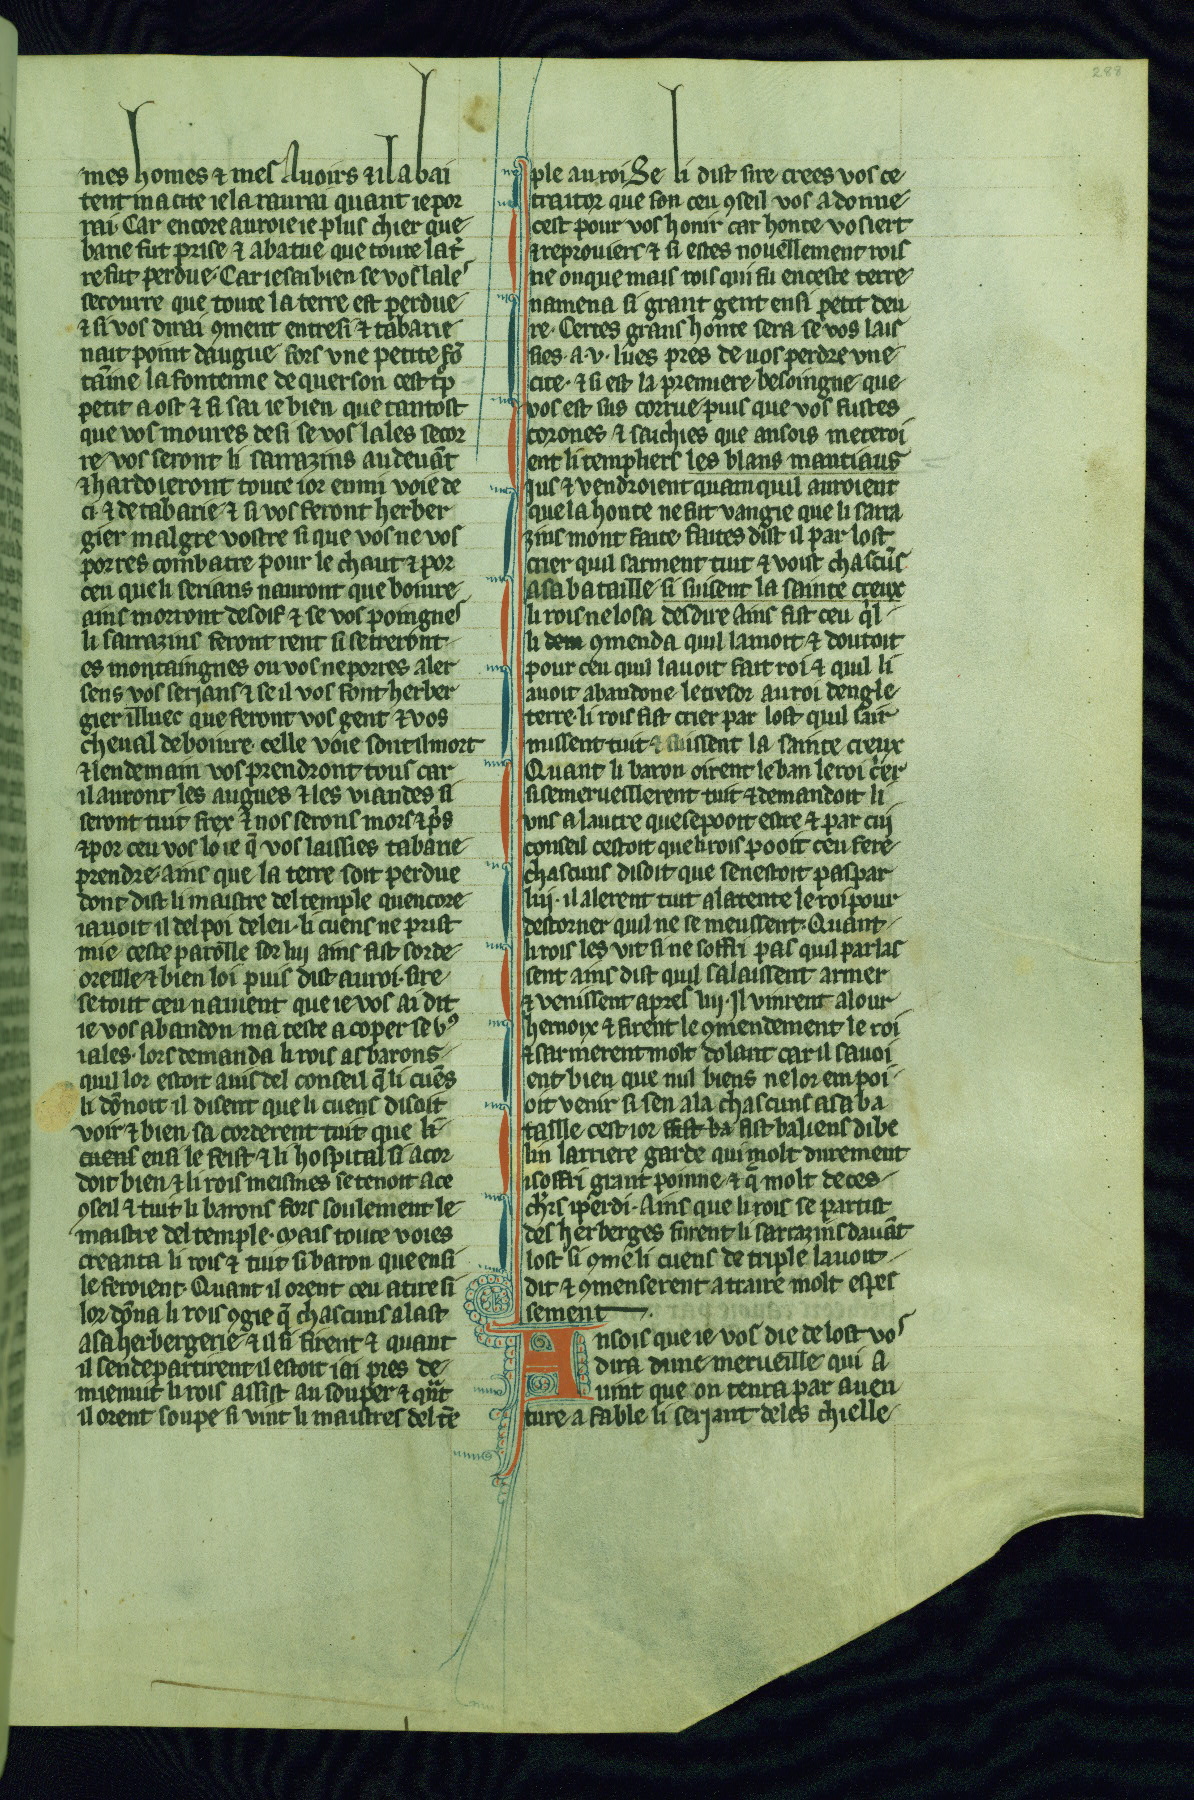 288
mes homes ⁊ mes Auoirs ⁊ il abai
tent ma cite ie la raurai quant ie por
rai. Car encore auroie ie plus chier que
barie fut prise ⁊ abatue que toute la t̄r
re fut perdue. Car ie sai bien se vos lales
secourre que toute la terre est perdue
⁊ si vos dirai ꝯment entresi ⁊ tabarie
nait point daugue fors vne petite fō
taine la fontenne de querson cest tp̄
petit a ost ⁊ si sai ie bien que tantost
que vos moures desi se vos lales secor
re vos seront li sarrazins au deuāt
⁊ hardoieront toute ior enmi voie de
ci ⁊ de tabarie ⁊ si vos feront herber
gier malgre vostre si que vos ne vos
porres combatre pour le chaut ⁊ por
ceu que li serians nauront que boiure
ains morront de soif ⁊ se vos poingnes
li sarrazins feront rent si se treront
es montaingnes ou vos ne porres aler
sens vos serians ⁊ se il vos font herber
gier illuec que feront vos gent ⁊ vos
cheual de boiure. celle voie sont il mort
⁊ lendemain vos prendront tous car
il auront les augues ⁊ les viandes si
seront tuit frex ⁊ nos serons mors ⁊ pͥs
⁊ por ceu vos lo ie q̄ vos laissies tabarie
prendre. ains que la terre soit perdue
dont dist li maistre del temple quencore
iauoit il del poi de leu. li cuens ne prist
mie ceste parolle sor lui ains fist sorde
oreille ⁊ bien loi puis dist au roi. sire
se tout ceu nauient que ie vos ai dit
ie vos abandon ma teste a coper se vꝰ
iales. lors demanda li rois as barons
quil lor estoit auis del conseil q̄ li cuēs
li dōnoit il disent que li cuens disoit
voir ⁊ bien sa corderent tuit que li
cuens ensi le feist ⁊ li hospital si acor
doit bien ⁊ li rois meismes se tenoit a ce
oseil ⁊ tuit li barons fors soulement le
maistre del temple. Mais toute voies
creanta li rois ⁊ tuit si baron que ensi
le feroient. Quant il orent ceu atire si
lor dōna li rois ꝯgie q̄ chascuns alast
a sa herbergerie ⁊ il si firent ⁊ quant
il sendepartirent il estoit iai pres de
mienuit li rois assist au souper ⁊ qn̄t
il orent soupe si vint li maistres del tē
ple au roi Se li dist sire crees vos ce
traitor que son ceu ꝯseil vos a donne
cest pour vos honir car honte vos iert
⁊ reprouiers ⁊ si estes nouellement rois
ne onque mais rois qui fu en ceste terre
namena si grant gent ensi petit deu
re. Certes grans honte sera se vos lais
sies .a .v. lues pres de vos perdre vne
cite. ⁊ si est la premiere besoingne que
vos est sus corrue puis que vos fustes
corones ⁊ saichies que ansois meteroi
ent li templiers les blans mantiaus
ius ⁊ vendroient quamquil auroient
que la honte ne fut vangie que li sarra
zins mont faite. faites dist il par lost
crier quil sarment tuit ⁊ voist chascūs
a sa bataille si siuisent la sainte creux
li rois ne losa desdire Ains fist ceu q̄l
li dem ꝯmenda quil lamoit ⁊ doutoit
pour ceu quil lauoit fait roi ⁊ quil li
auoit abandone le tresor au roi dengle
terre. li rois fist crier par lost quil sair
missent tuit ⁊ siuissent la sainte creux
Quant li baron oirent le ban le roi crier
si se merueillerent tuit ⁊ demandoit li
vns a lautre que se pooit estre ⁊ par cui
conseil cestoit que li rois pooit ceu fere
chascuns disoit que se nestoit pas par
lui. il alerent tuit a la tente le roi pour
destorner quil ne se meussent. Quant
li rois les vit si ne soffri pas quil parlas
sent ains dist quil salaissent armer
⁊ venissent apres lui. Il vinrent a lour
hernoix ⁊ firent le ꝯmendement le roi
⁊ sarmerent molt dolant car il sauoi
ent bien que nul biens ne lor em poi
oit venir si sen ala chascuns a sa ba
taille cest ior fist ba fist baliens dibe
lin larriere garde qui molt durement
i soffri grant poinne ⁊ q̄ molt de ces
chr̄s i perdi. Ains que li rois se partist
des herberges furent li sarrazins dauāt
lost si ꝯme li cuens de triple lauoit
dit ⁊ ꝯmenserent a traire molt espes
sement
Ansois que ie vos die de lost vos
dira dune merueille qui a
uint que on tenra par auen
ture a fable li serjant deles chielle